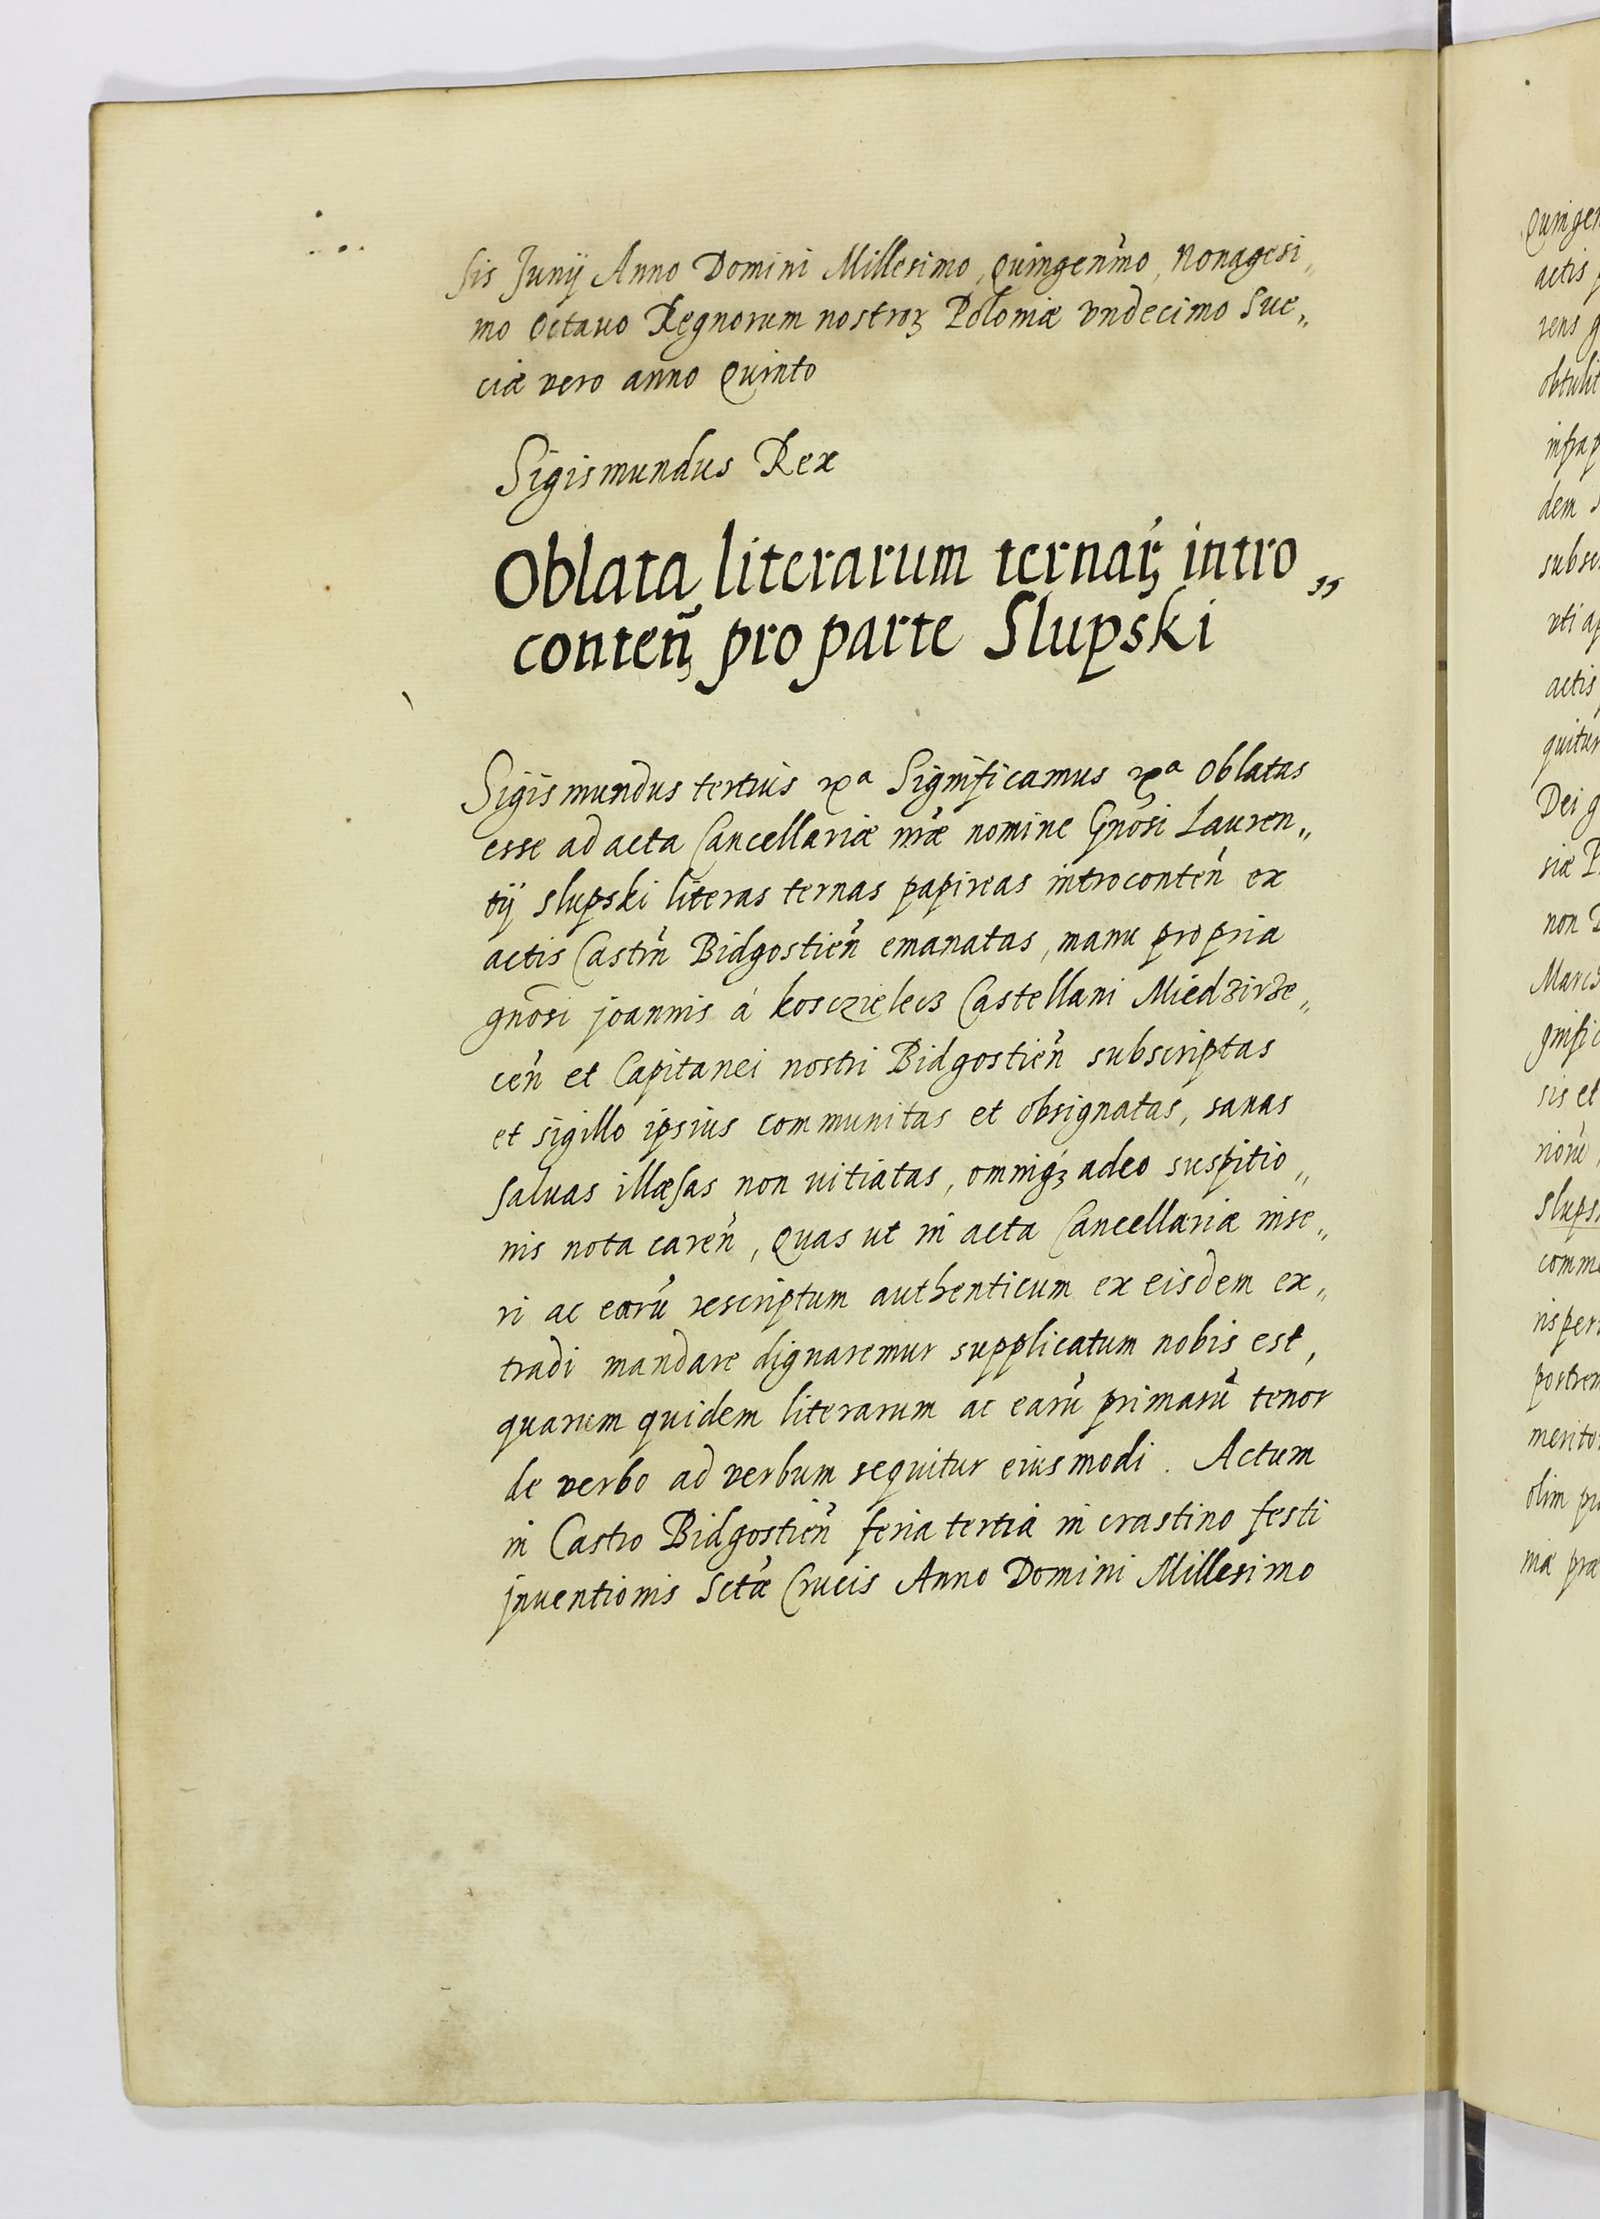 sis Junÿ Anno Domini Millesimo, Quingen̄mo, Nonagesi„
mo Octauo Regnorum nostroꝝ Poloniæ vndecimo Sue„
ciæ vero anno Quinto
Sigismundus Rex
Oblata literarum ternaꝝ intro„
conten̄ pro parte Slupski
Sigismundus tertius rxª Significamus rxª oblatas
esse ad acta Cancellariæ nr̄æ nomine Gn̄osi Lauren„
tÿ Slupski literas ternas papireas introconten̄ ex
actis Castrn̄ Bidgostien̄ emanatas, manu propria
gn̄osi joannis á kosczielecz Castellani Miedzirze„
cen̄ et Capitanei nostri Bidgostien̄ subscriptas
et sigillo ipsius communitas et obsignatas, sanas
saluas illæsas non uitiatas, omniqꝫ adeo suspitio„
nis nota caren̄, Quas ut in acta Cancellariæ inse„
ri ac earū rescriptum authenticum ex eisdem ex„
tradi mandare dignaremur supplicatum nobis est,
quarum quidem literarum ac earū primarū tenor
de verbo ad verbum sequitur eiusmodi. Actum
in Castro Bidgostien̄ feria tertia in crastino festi
jnuentionis Sctǣ Crucis Anno Domini Millesimo
Quingen
actis
rens
obtulit
infra
dem
subsc
vti
actis
quitur
Dei g
siæ
non
Marcs
gnific
sis et
riorū
Slups
comm
ris per
postrem
merito
olim
niæ præ